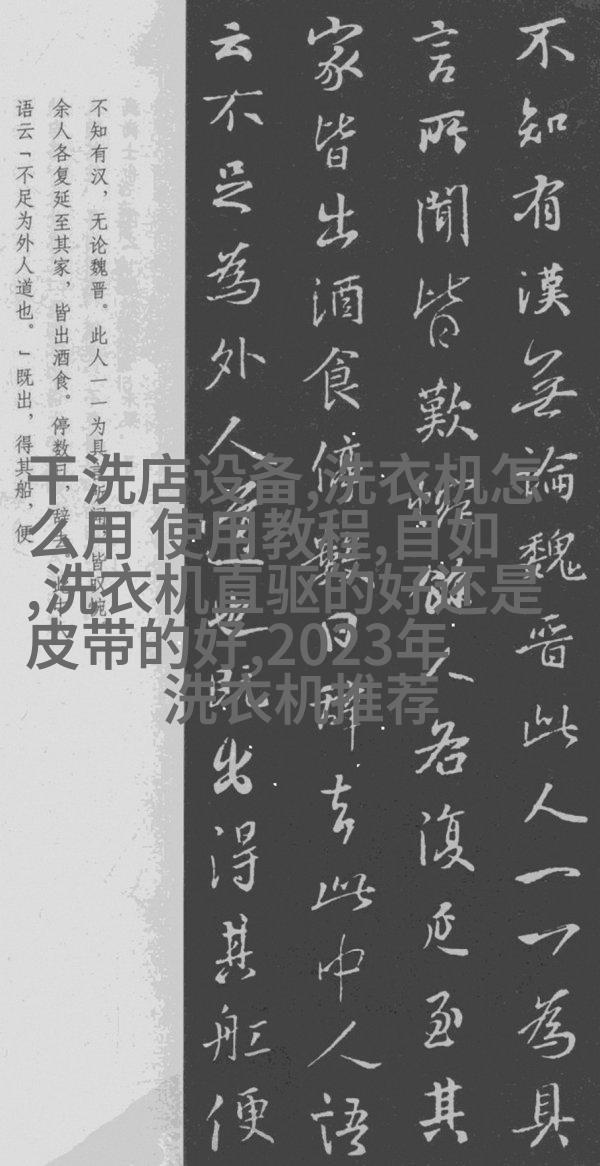 不知有漢無論魏晉此人一一為具
言所聞皆歎惋餘人各復延至其
家皆出酒食停數日辭去此中人語
云不足為外人道也既出得其船便
不知有汉，无论魏晋。此人一一为具言所闻，皆叹惋。
余人各复延至其家，皆出酒食。停数日，辞去。此中人
语云「不足为外人道也。」既出，得其船，便
干洗店设备,洗衣机怎
么用 使用教程,自如
,洗衣机直驱的好还是
皮带的好,2023年
洗衣机推荐